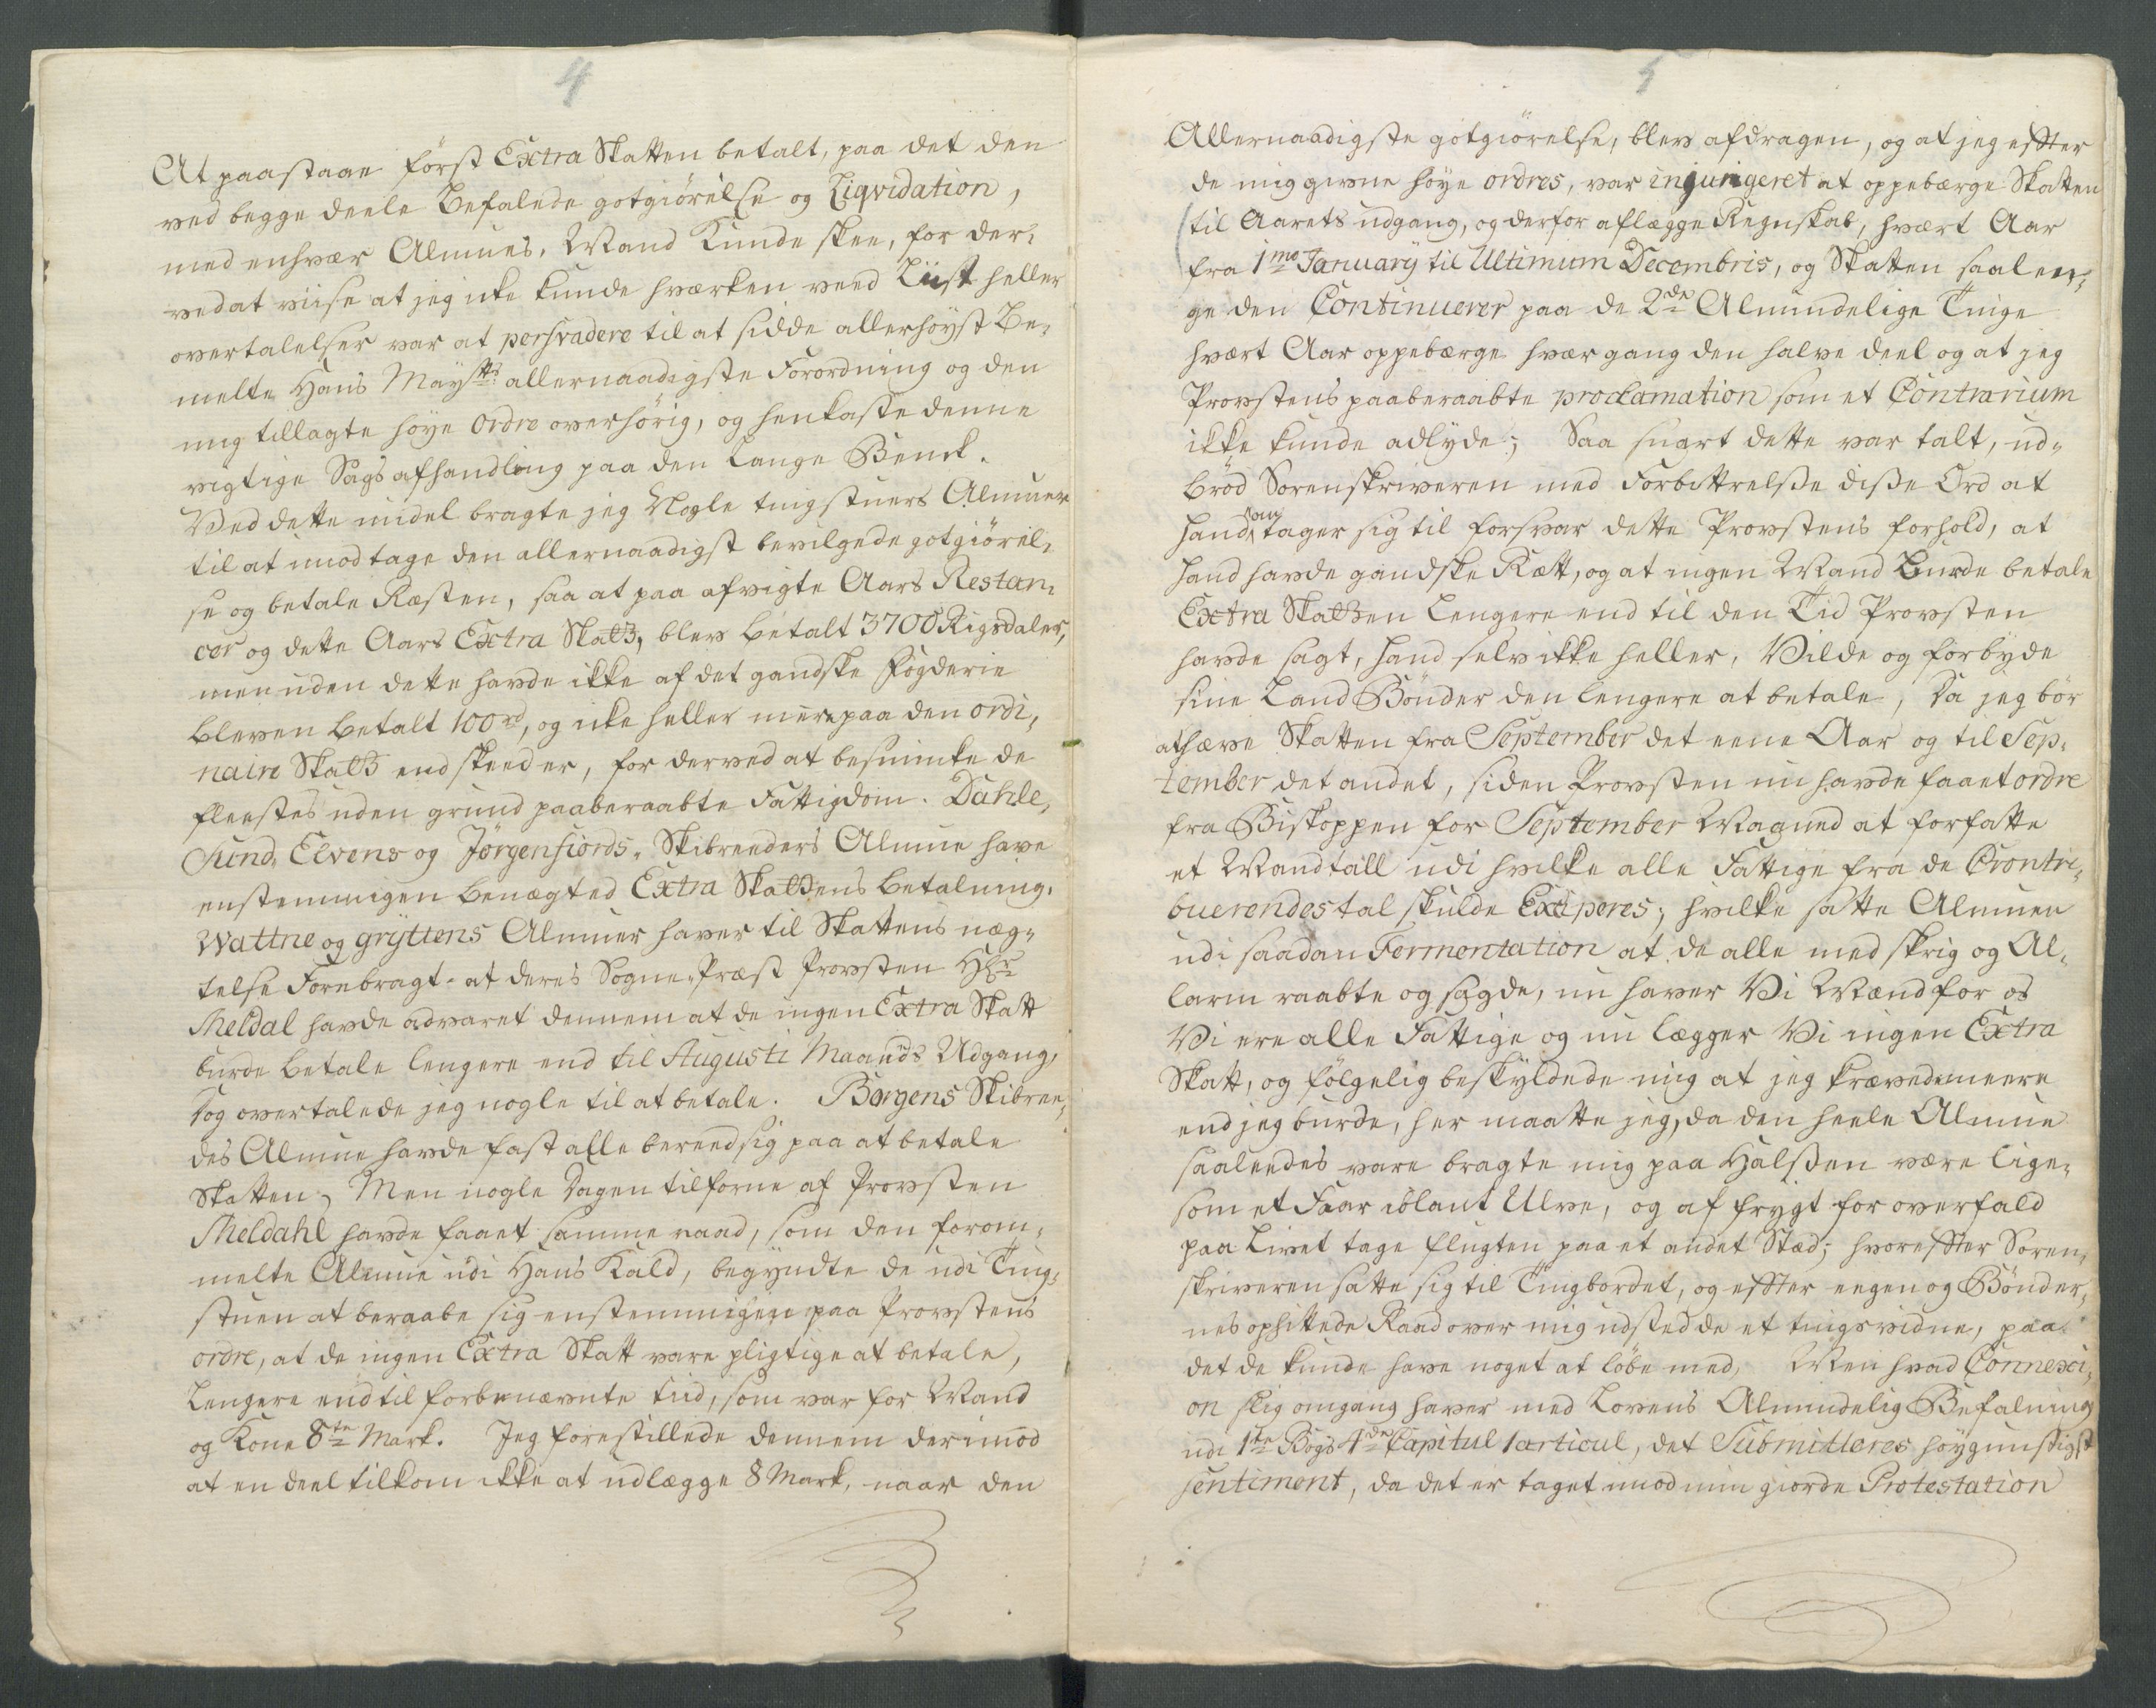 4
At paastaae först Extra Skatten betalt, paa det den
ved begge deele Befalede gotgiörelse og Liqvidation,
med enhvær Almues, Mand Kunde skee, for der,
ved at viise at jeg icke kunde hværken veed Liist heller
overtalelser var at persvadere til at sidde allerhöyst Be,
melte Hans Mayst:ts allernaadigste Forordning og den
mig tillagte höye ordre overhörig, og henkaste denne
vigtige Sags afhandling paa den Lange Benck.
Ved dette midel bragte jeg Nogle tingstuers Almuer
til at imodtage den allernaadigst bevilgede gotgiörel,
se og betale Ræsten, saa at paa afvigte Aars Restan,
cer og dette Aars Extra Skatt, blev Betalt 3700 Rigsdaler,
men uden dette havde ikke af det gandske Fogderie
bleven Betalt 100 rd, og icke heller mere paa den ordi,
naire Skatt end skeed er, for derved at besmincke de
fleestes uden grund paaberaabte Fattigdom. Dahle,
Sund, Elvens og Jörgenfiords, Skibreeders Almue have
enstemmigen Benægted Extra Skattens Betalning.
Wattne og gryttens Almuer haver til Skattens næg,
telse Forebragt, at deres Sogne-Præst Provsten Hr:
Meldal havde advaret dennem at de ingen Extra Skatt
burde Betale lengere end til Augusti Maaneds Udgang,
Dog overtalede jeg nogle til at betale. Borgens Skibree,
des Almue havde fast alle bereed sig paa at betale
Skatten, Men nogle Dagen tilforne af Provsten
Meldahl havde faaet samme raad, som den forom,
melte Almue udi Hans Kald, begyndte de udi Ting,
stuen at beraabe sig enstemmigen paa Provstens
ordre, at de ingen Extra Skatt vare pligtige at betale,
Lengere end til forbenævnte tiid, som var for Mand
og Kone 8te Mark. Jeg forestillede dennem derimod
at en deel tilkom ikke at udlægge 8 Mark, naar den
5
Allernaadigste gotgiörelse, blev afdragen, og at jeg effter
de mig givne höye ordres, var injungeret at oppebærge Skatten
til Aarets udgang, og derfor aflægge Regnskab, hvært Aar
fra 1mo January til Ultimum Decembris, og Skatten saalen,
ge den Continuerer paa de 2de Almindelige Tinge
hvært Aar oppebærge hvær gang den halve deel og at jeg
Provstens paaberaabte proclamation som et Contrarium
ikke kunde adlyde; Saa snart dette var talt, ud,
bröd Sorenskriveren med Forbittrelse disse Ord at
Hand an tager sig til forsvar dette Provstens forhold, at
Hand havde gandske Rætt, og at ingen Mand Burde betale
Extra Skatten Lengere end til den Tid Provsten
havde sagt, Hand selv ikke heller, Vilde og forbyde
sine Land Bönder den lengere at betale, Da jeg bör
at hæve Skatten fra September det eene Aar og til Sep,
tember det andet, siden Provsten nu havde faaet ordre
fra Biskoppen for September Maaned at forfatte
et Mandtall udi hvilke alle Fattige fra de Contri,
buerendes tal skulde Exiperes; hvilke satte Almuen
udi saadan Fermentation at de alle med skrig og Al,
larm raabte og sagde, nu haver Vi Mænd for os
Vi ere alle Fattige og nu lægger Vi ingen Extra
Skatt, og fölgelig beskyldede mig at jeg krævede meere
end jeg burde, her maatte jeg, da den heele Almue
saaleedes vare bragte mig paa Halsen være lige,
som et Faar iblant Ulve, og af frygt for overfald
paa Livet tage flugten paa et andet Stæd; hvoreffter Soren,
skriveren satte sig til Tingbordet, og effter eegen og Bönder,
nes ophittede Raad over mig udstedde et tingsvidne, paa
det de kunde have noget at löbe med, Men hvad Connexi,
on slig omgang haver med Lovens Almindelig Befalning
udi 1te Bogs 4de Capitul 1 articul, det Submitteres höygunstigst
sentiment, da det er taget imod min giorde Protestation